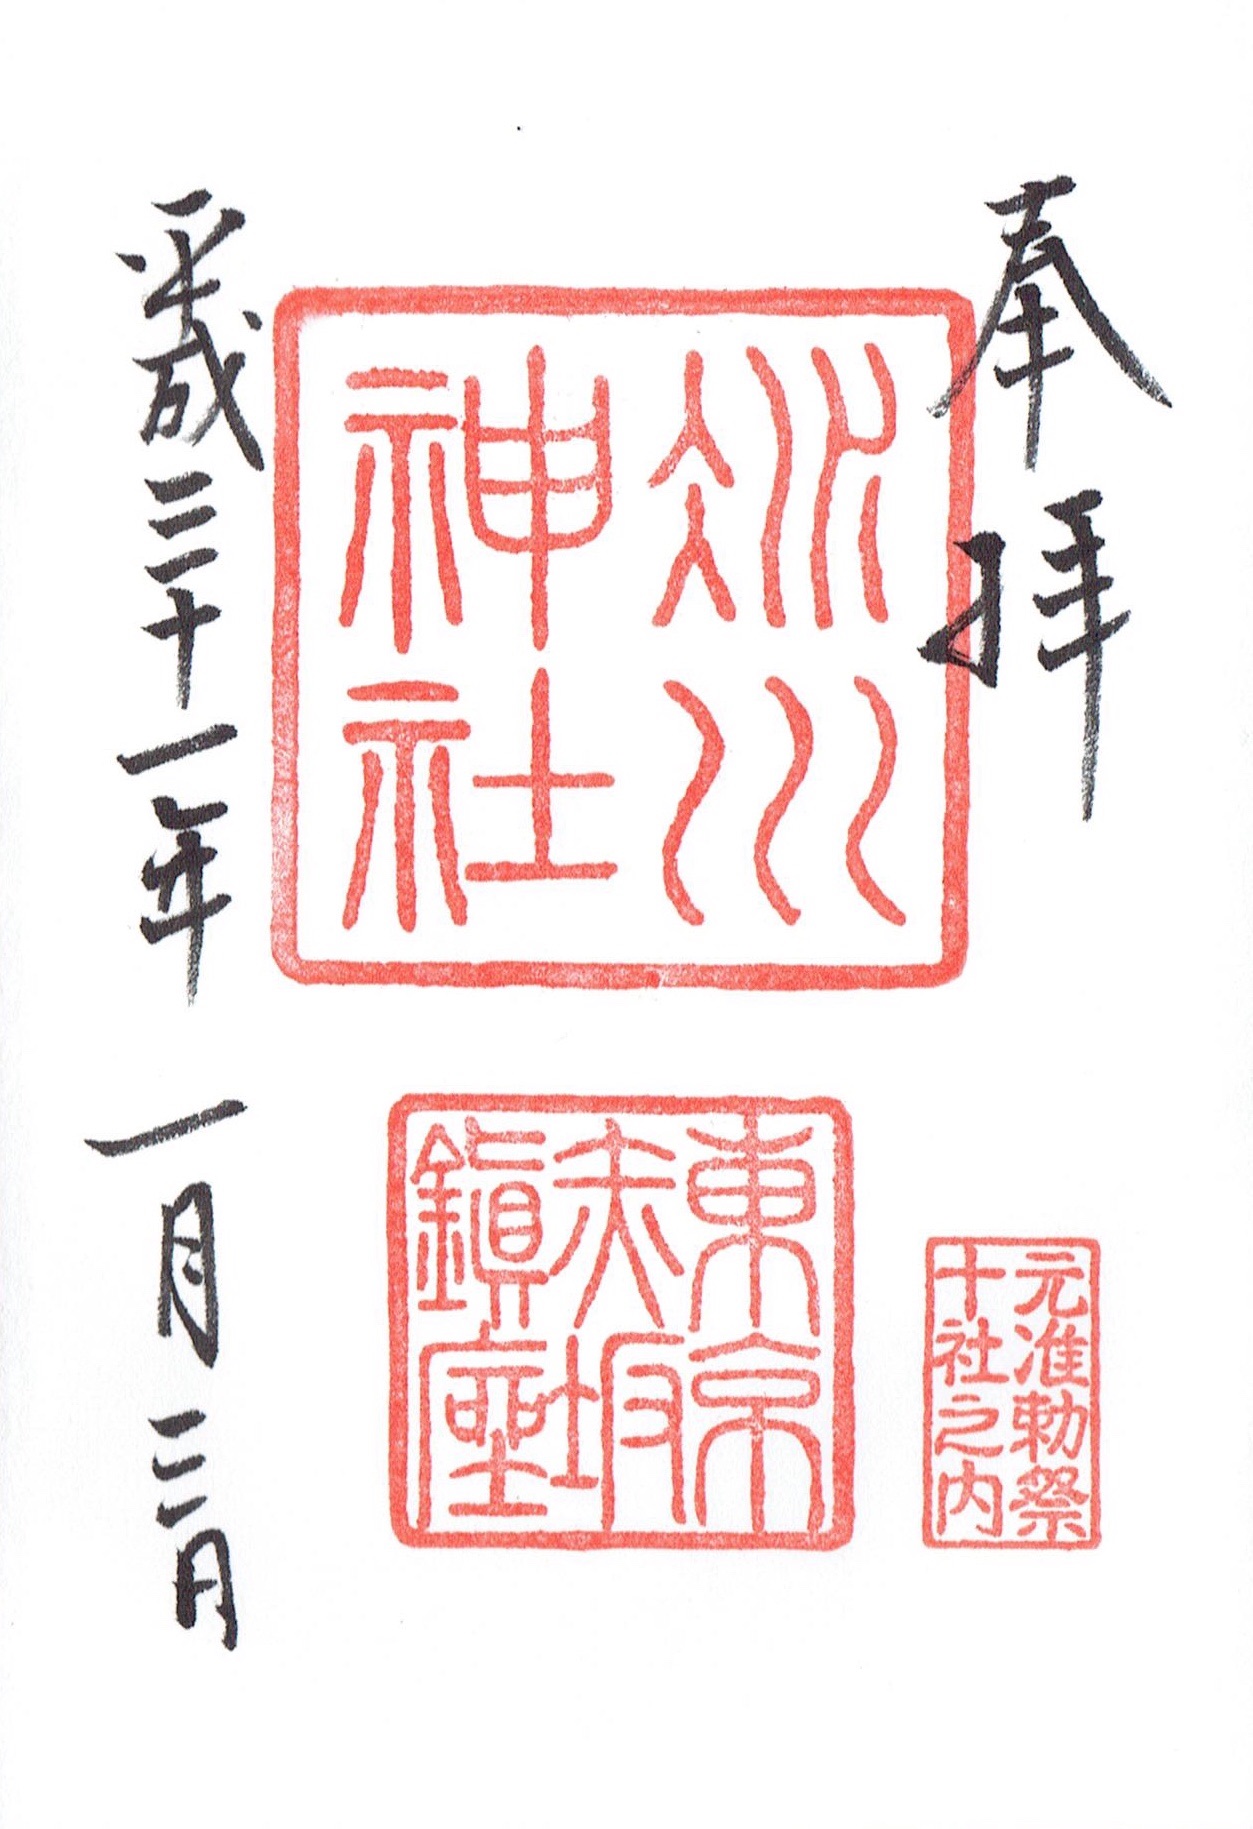 奉拝
冰川
神社
東京
赤坂
鎭座
元准勅祭
十社之内
平成三十一年 一月三日